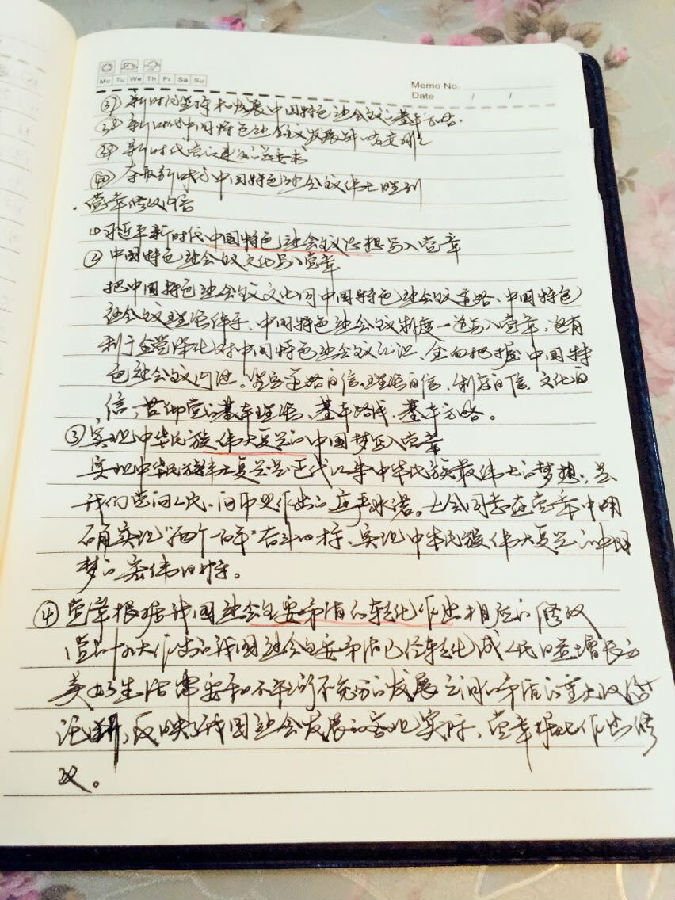 Mo Tu We Th Fr Sa Su
Memo No.
Date / /
新时代坚持和发展中国特色社会主义的基本方略。
新时代中国特色社会主义发展的战略安排
新时代党的建设总要求
④ 夺取新时代中国特色社会主义伟大胜利
党章修改内容
① 习近平新时代中国特色社会主义思想写入党章
② 中国特色社会主义文化写入党章
把中国特色社会主义文化同中国特色社会主义道路、中国特色
社会主义理论体系、中国特色社会主义制度一道写入党章,这有
利于全党深化对中国特色社会主义认识、全面把握中国特
色社会主义内涵。坚定道路自信、理论自信、制度自信、文化自
信,贯彻党的基本理论、基本路线、基本方略。
③ 实现中华民族伟大复兴的中国梦写入党章
实现中华民族伟大复兴是近代以来中华民族最伟大的梦想,是
我们党向人民、向历史作出的庄严承诺。大会同意在党章中明
确实现“两个一百年”奋斗目标、实现中华民族伟大复兴的中国
梦的宏伟目标。
④ 党章根据我国社会主要矛盾的转化作出相应的修改
党的十九大作出的我国社会主要矛盾已经转化成人民日益增长的
美好生活需要和不平衡不充分的发展之间的矛盾的重大政治
论断,反映了我国社会发展的客观实际,党章据此作出修
改。